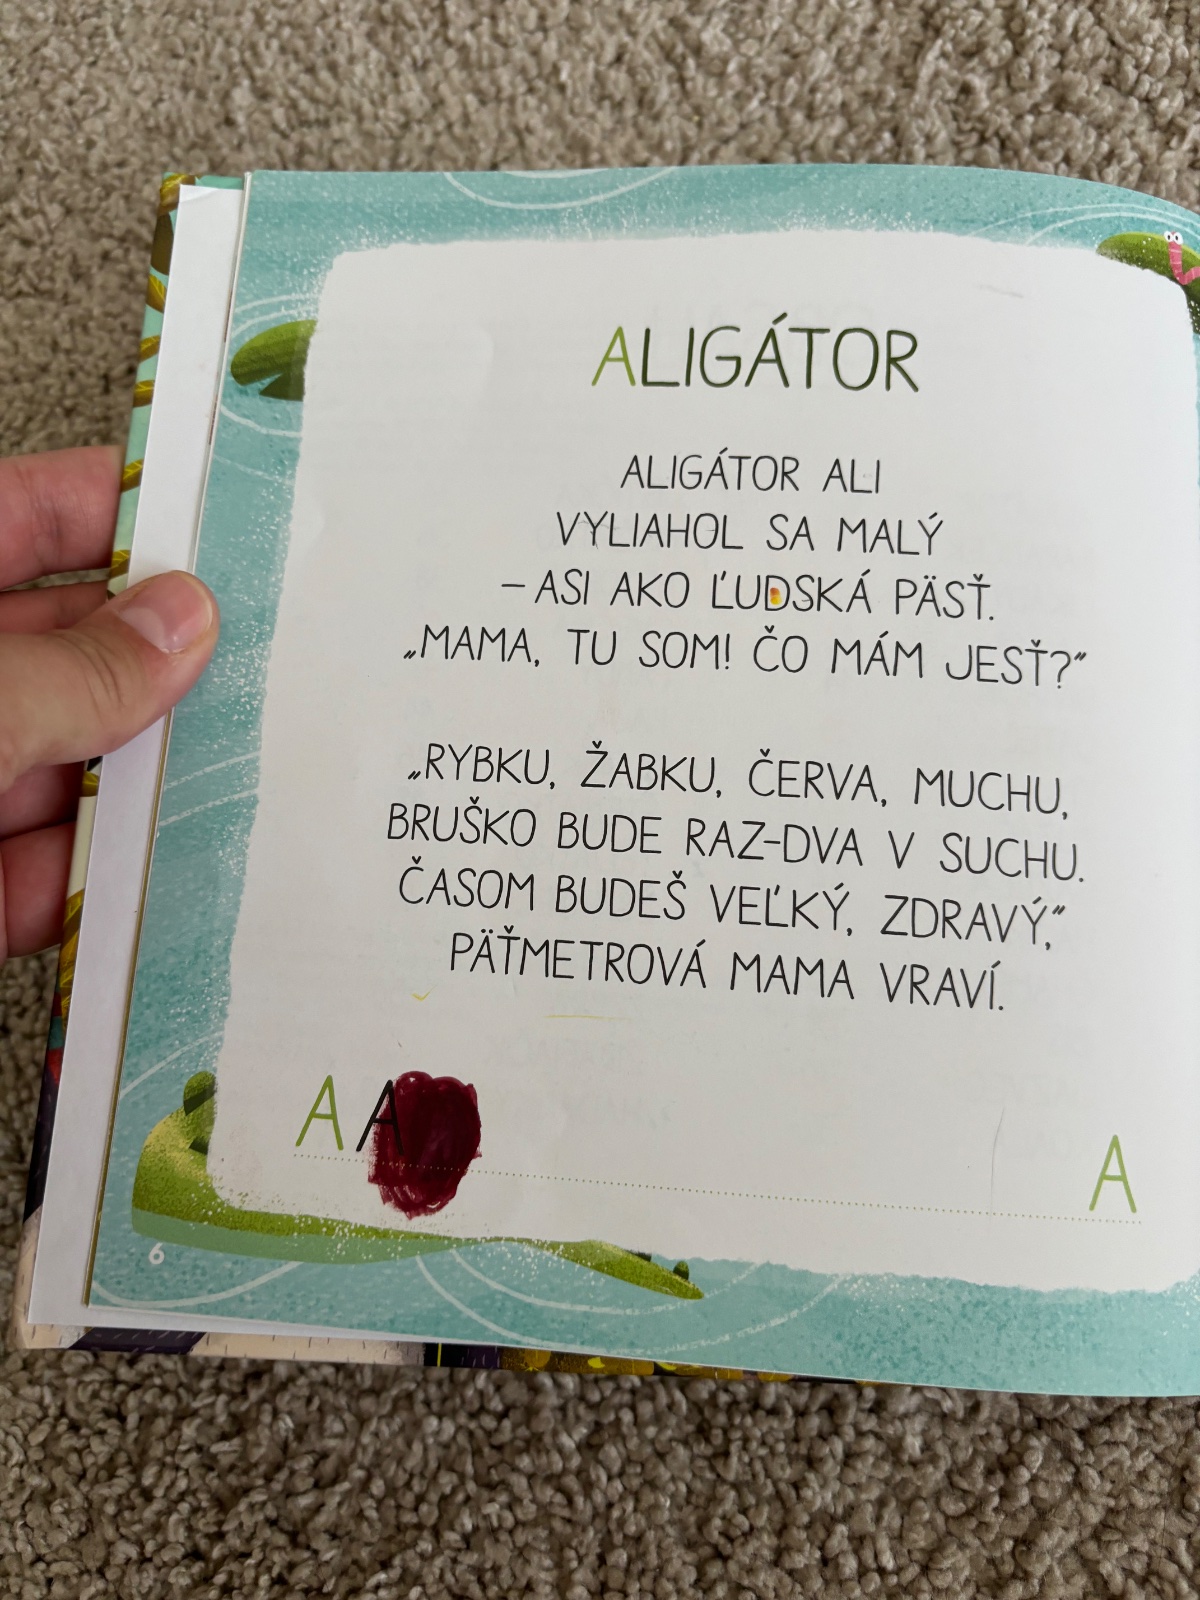 ALIGÁTOR
ALIGÁTOR ALI
VYLIAHOL SA MALÝ
– ASI AKO ĽUDSKÁ PÄSŤ.
„MAMA, TU SOM! ČO MÁM JESŤ?“
„RYBKU, ŽABKU, ČERVA, MUCHU,
BRUŠKO BUDE RAZ-DVA V SUCHU.
ČASOM BUDEŠ VEĽKÝ, ZDRAVÝ,“
PÄŤMETROVÁ MAMA VRAVÍ.
A A A
6